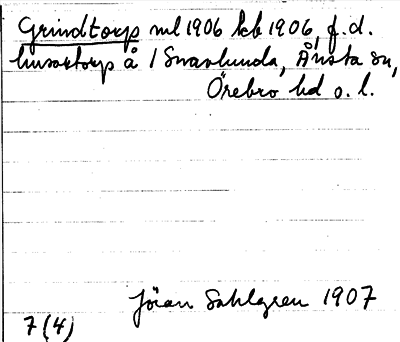 Grindtorp ml 1906 hcb 1906, f.d.
husartorp å 1 Svarlunda, Ånsta sn,
Örebro hd o. l.
Jöran Sahlgren 1907
7(4)